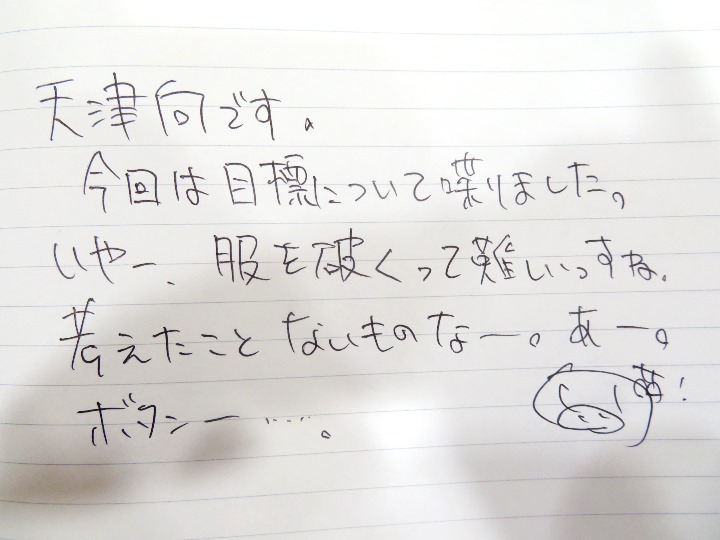 天津向です。
今回は目標について喋りました。
いやー、服を破くって難しいっすね。
考えたことないものなー。あー。
ボタンー……。